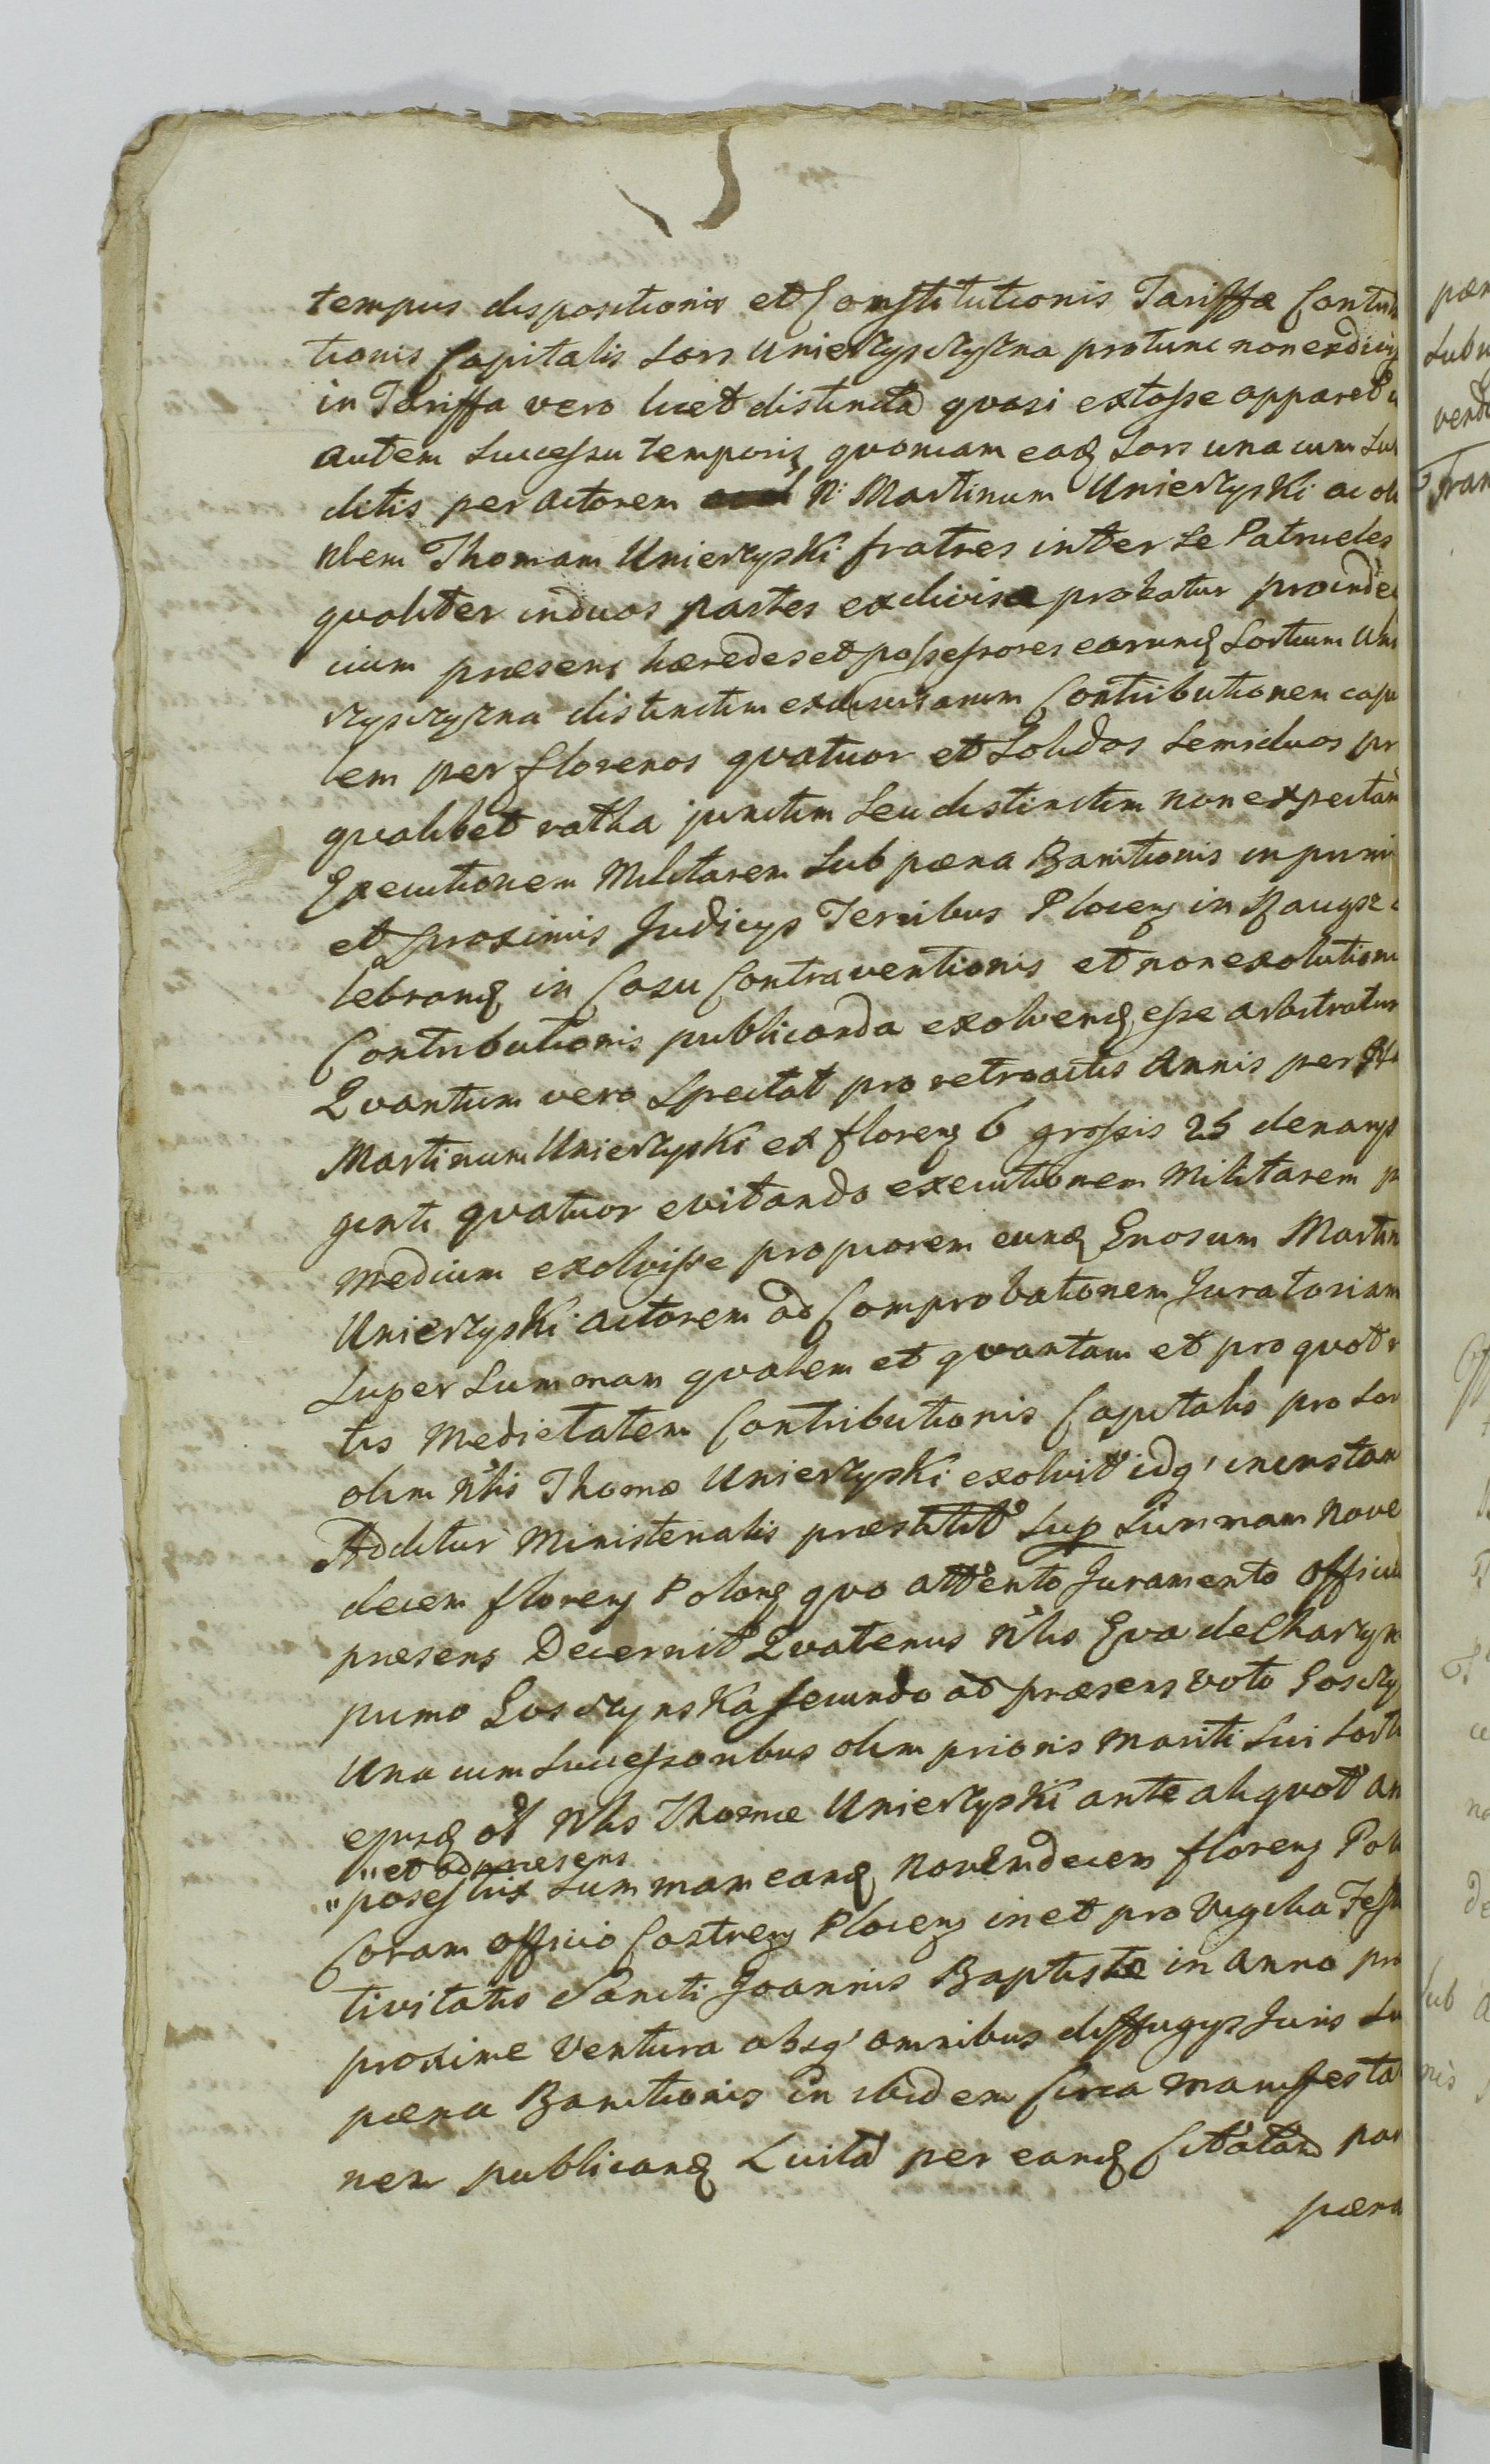 tempus dispositionis et Constitutionis Tariffæ Contribu
tionis Capitalis Sors Unierzysczyzna protunc non exdivis
in Tariffa vero licet distincta quasi extasse apparet
autem Successu temporis quoniam eadem Sors una cum Sub
ditis per actorem N: Martinum Unierzyski ac oli
Nblem Thomam Unierzyski fratres inter Se Patrueles
qualiter in duas partes exdivisa probatur proinde
cium præsens hæredes et possessores earund Sortium Uni
rzysczyzna distinctim exdivisarum Contributionem capi
lem per florenos quatuor et Solidos Semiduos pr
qualibet ratha junctim Seu distinctim non expectan
Executionem Militarem Sub pæna Banitionis in primi
et proximis Judicys Terribus Plocens in Raygrz
lebrand in Casu Contraventionis et non exolutioni
Contributionis publicanda exolvend esse arbitratur
Quantum vero Spectat pro retroactis Annis per
Martinum Unierzyski ex floreng 6 grossis 25 denarys
genti quatuor evitando executionem Militarem p
medium exolvisse propriorem eund Gnosum Martin
Unierzyski actorem ad Comprobationem Juratoriam
Super Summam qualem et quantam et pro quot
tis Medietatem Contributionis Capitalis pro Sor
olim Nblis Thomæ Unierzyski exolvit idq' incunstan
Additur Ministerialis præstitit Sup Summam Nove
decem floreng Polong quo attento Juramento Officiu
præsens Decernit Quatenus Nblis Eva de Charzyn
primo Gosczynska secundo ad præsens voto Gosczy
Una cum Successoribus olim prioris mariti Sui Sorti
ejusd ol Nblis Thomæ Unierzyski ante aliquot an
"et ad præsens
"possestrix Summam eand Novemdecem floreng Pol
Coram Officio Castreng Plocens in et pro Vigilia Fest
tivitatis Sancti Joannis Baptistæ in Anno pro
proxime Ventura absq' omnibus diffugys Juris Su
pæna Banitionis in ibidem Circa manifesta
nem publicand Luita per eand Citatam par
pæna